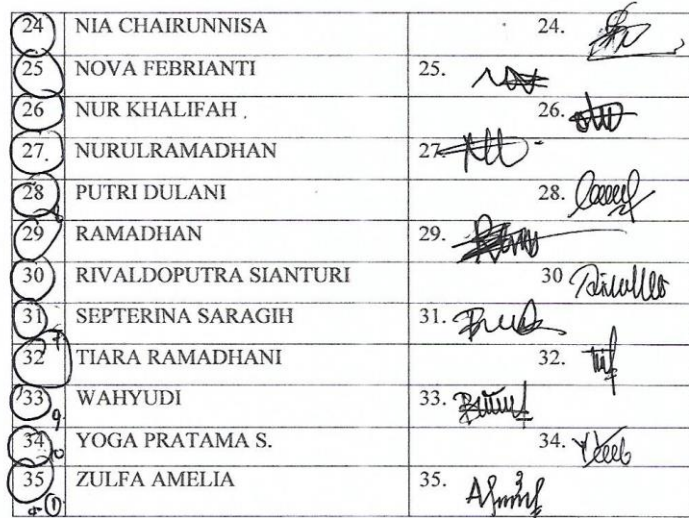 24 NIA CHAIRUNNISA 24.
25 NOVA FEBRIANTI 25.
26 NUR KHALIFAH 26.
27. NURULRAMADHAN 27
28 PUTRI DULANI 28.
29 RAMADHAN 29.
30 RIVALDOPUTRA SIANTURI 30
31 SEPTERINA SARAGIH 31.
32 TIARA RAMADHANI 32.
33 WAHYUDI 33.
34 YOGA PRATAMA S. 34.
35 ZULFA AMELIA 35.